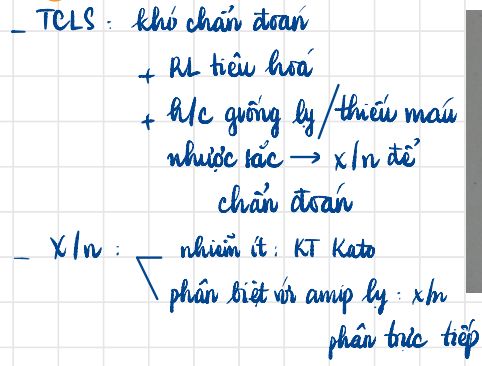 _ TCLS : khó chẩn đoán
+ RL tiêu hoá
+ h/c giống lỵ / thiếu máu
nhược sắc → x/n để
chẩn đoán
_ X/n : nhiễm ít : KT Kato
phân biệt với amip lỵ : x/n
phân trực tiếp